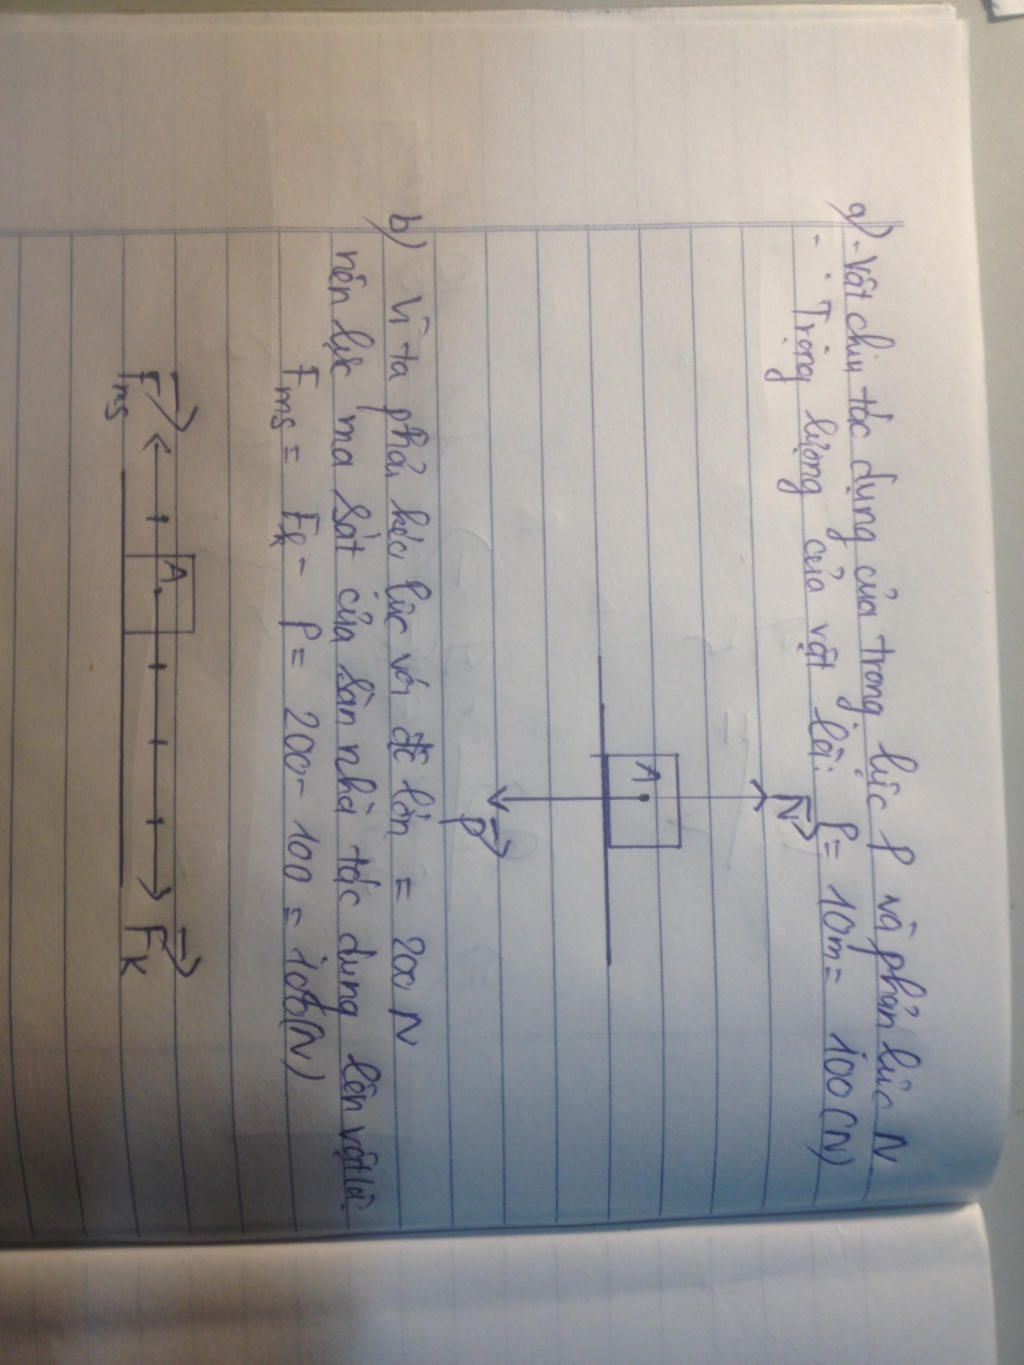 a) - Vật chịu tác dụng của trọng lực P và phản lực N
- . Trọng lượng của vật là: P = 10m = 100(N)
N
A
P
b) Vì ta phải kéo lực với độ lớn = 200 N
nên lực ma sát của sàn nhà tác dụng lên vật là:
Fms = Fk - P = 200 - 100 = 100(N)
A
Fms
Fk